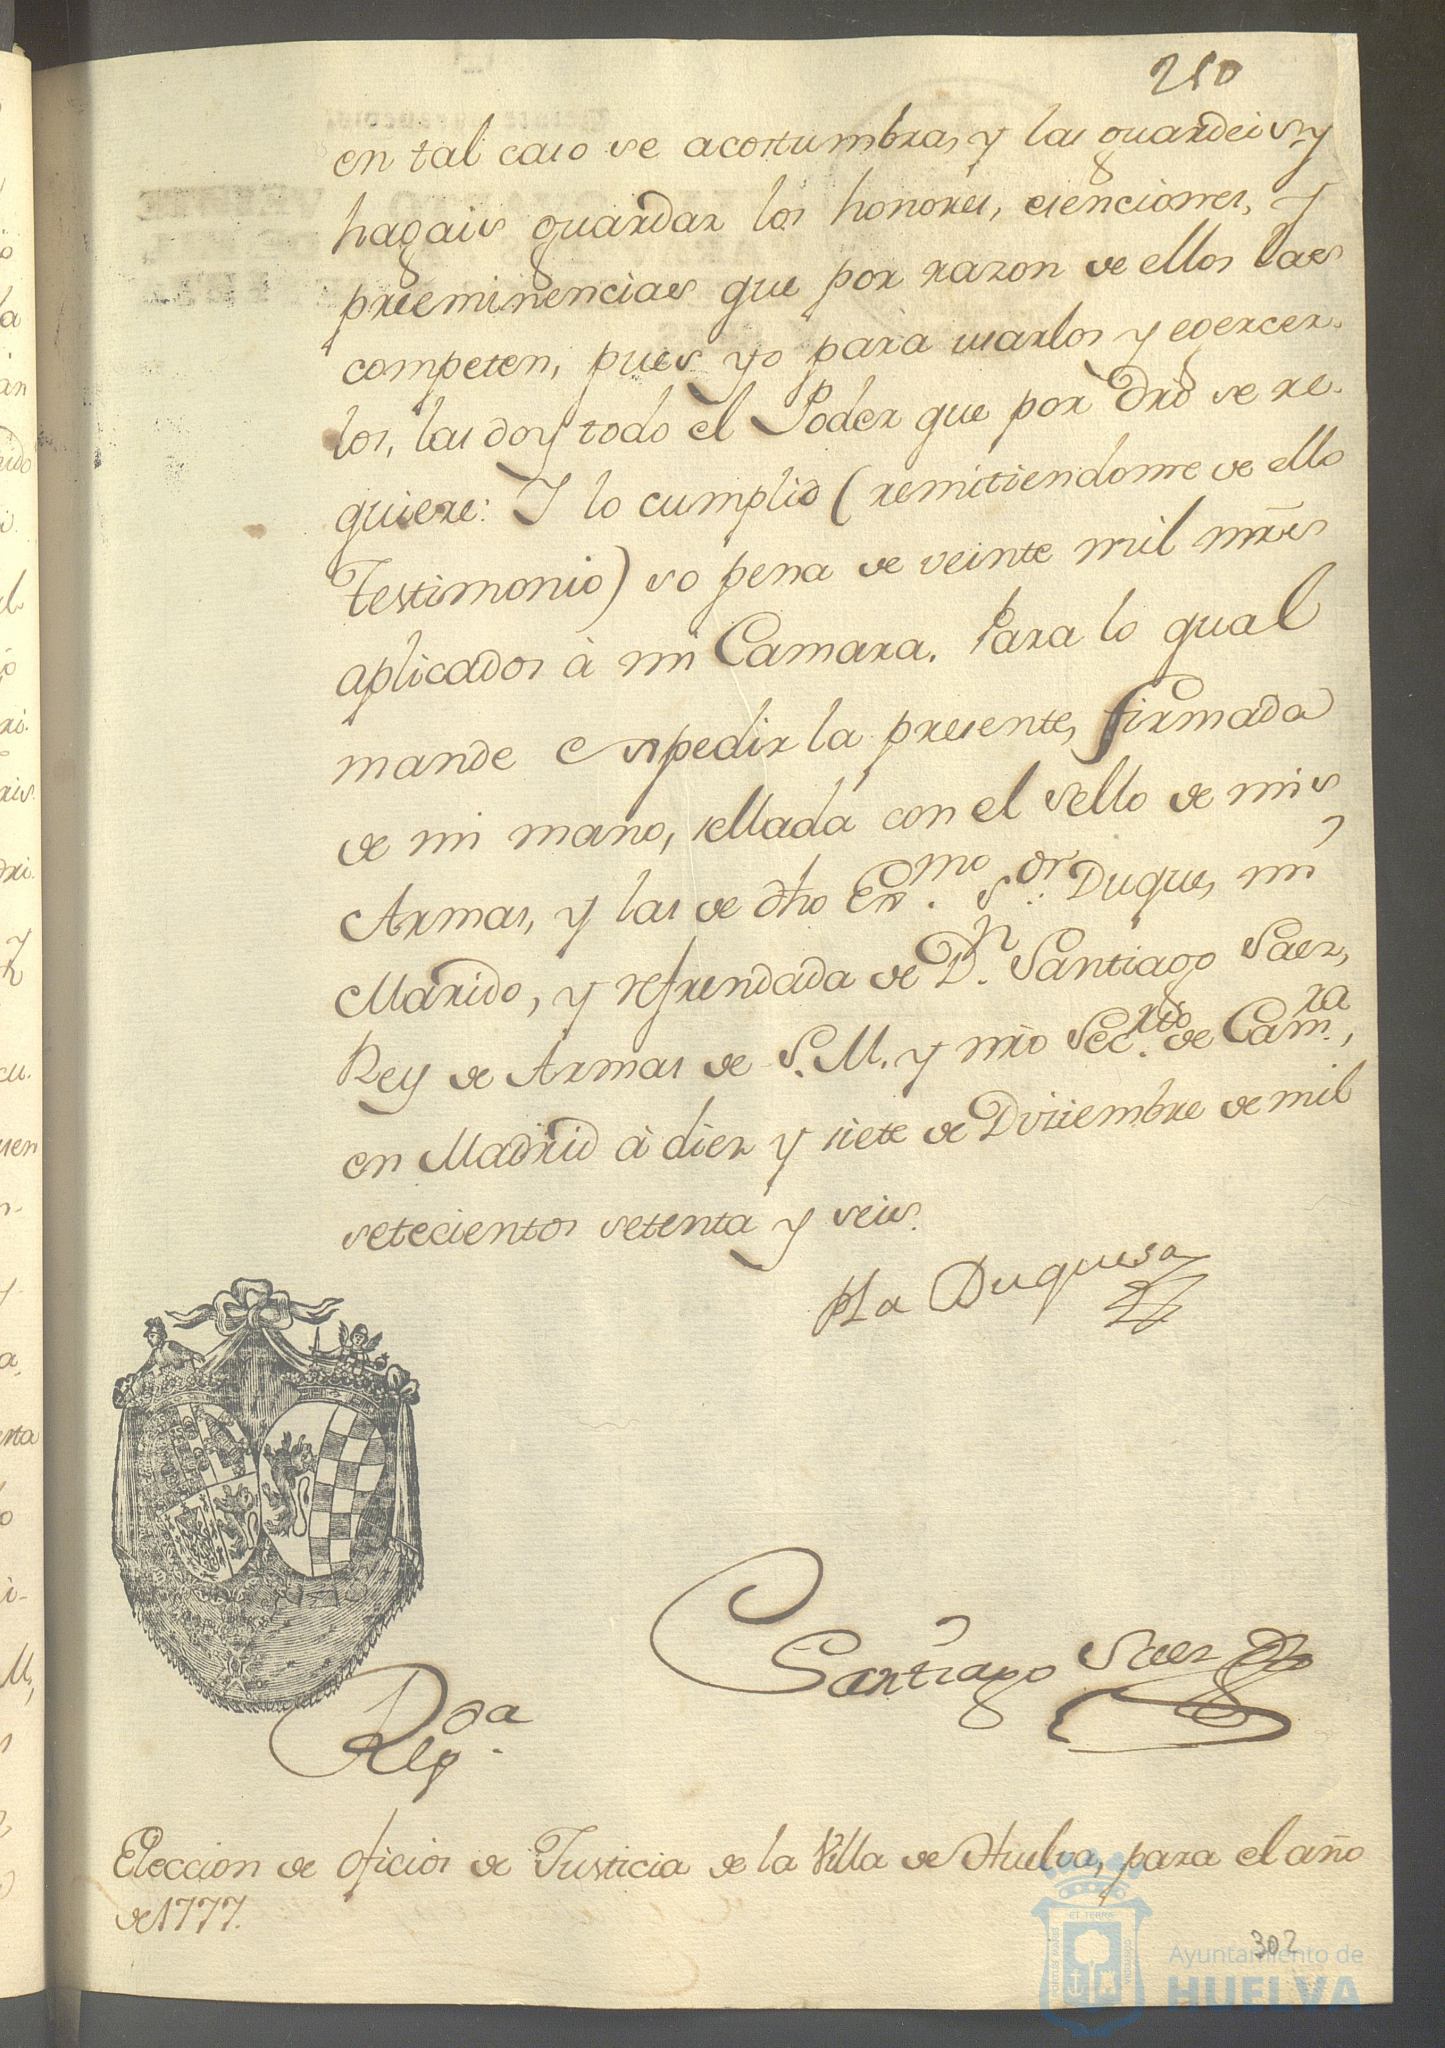 210
en tal caso se acostumbra, y las guardeis, y
hagais guardar los honores, esenciones, y
preeminencias que por razon de ellos las
competen, pues yo para usarlos y egercer-
los, las doy todo el Poder que por dro se re-
quiere: Y lo cumplid (remitiendome de ello
Testimonio) so pena de veinte mil mrs
aplicados à mi Camara. Para lo qual
mande espedir la presente, firmada
de mi mano, sellada con el sello de mis
Armas, y las de dho Exmo. Sor. Duque, mi
Marido, y refrendada de Dn. Santiago Saez,
Rey de Armas de S. M. y mio Secrio. de Camra.,
en Madrid à diez y siete de Diziembre de mil
setecientos setenta y seis.
La Duquesa
Santiago Saez
Regda.
Eleccion de oficios de Justicia de la Villa de Huelva, para el año
de 1777.
302
Ayuntamiento de
HUELVA